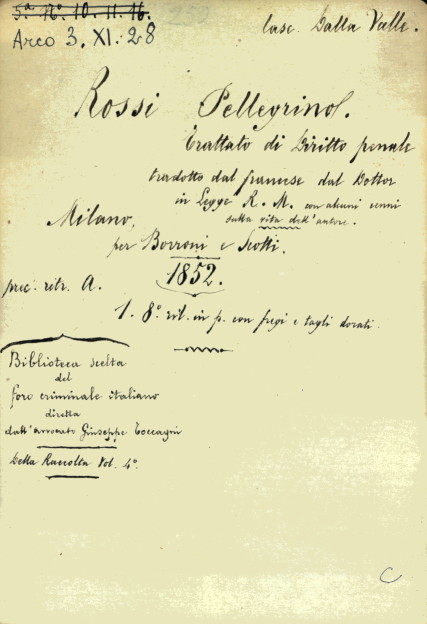 5.ª Nº. 10. 11. 16.
Arco 3. XI. 28
lasc. Dalla Valle.
Rossi Pellegrino.
Trattato di Diritto penale
tradotto dal francese dal Dottor
in Legge R. M. con alcuni cenni
sulla vita dell'autore.
Milano,
per Borroni e Scotti.
1852.
prec. ritr. A.
1. 8º. ril. in p. con fregi e tagli dorati.
Biblioteca scelta
del
foro criminale italiano
diretta
dall'avvocato Giuseppe Toccagni
Della Raccolta Vol. 4º.
C